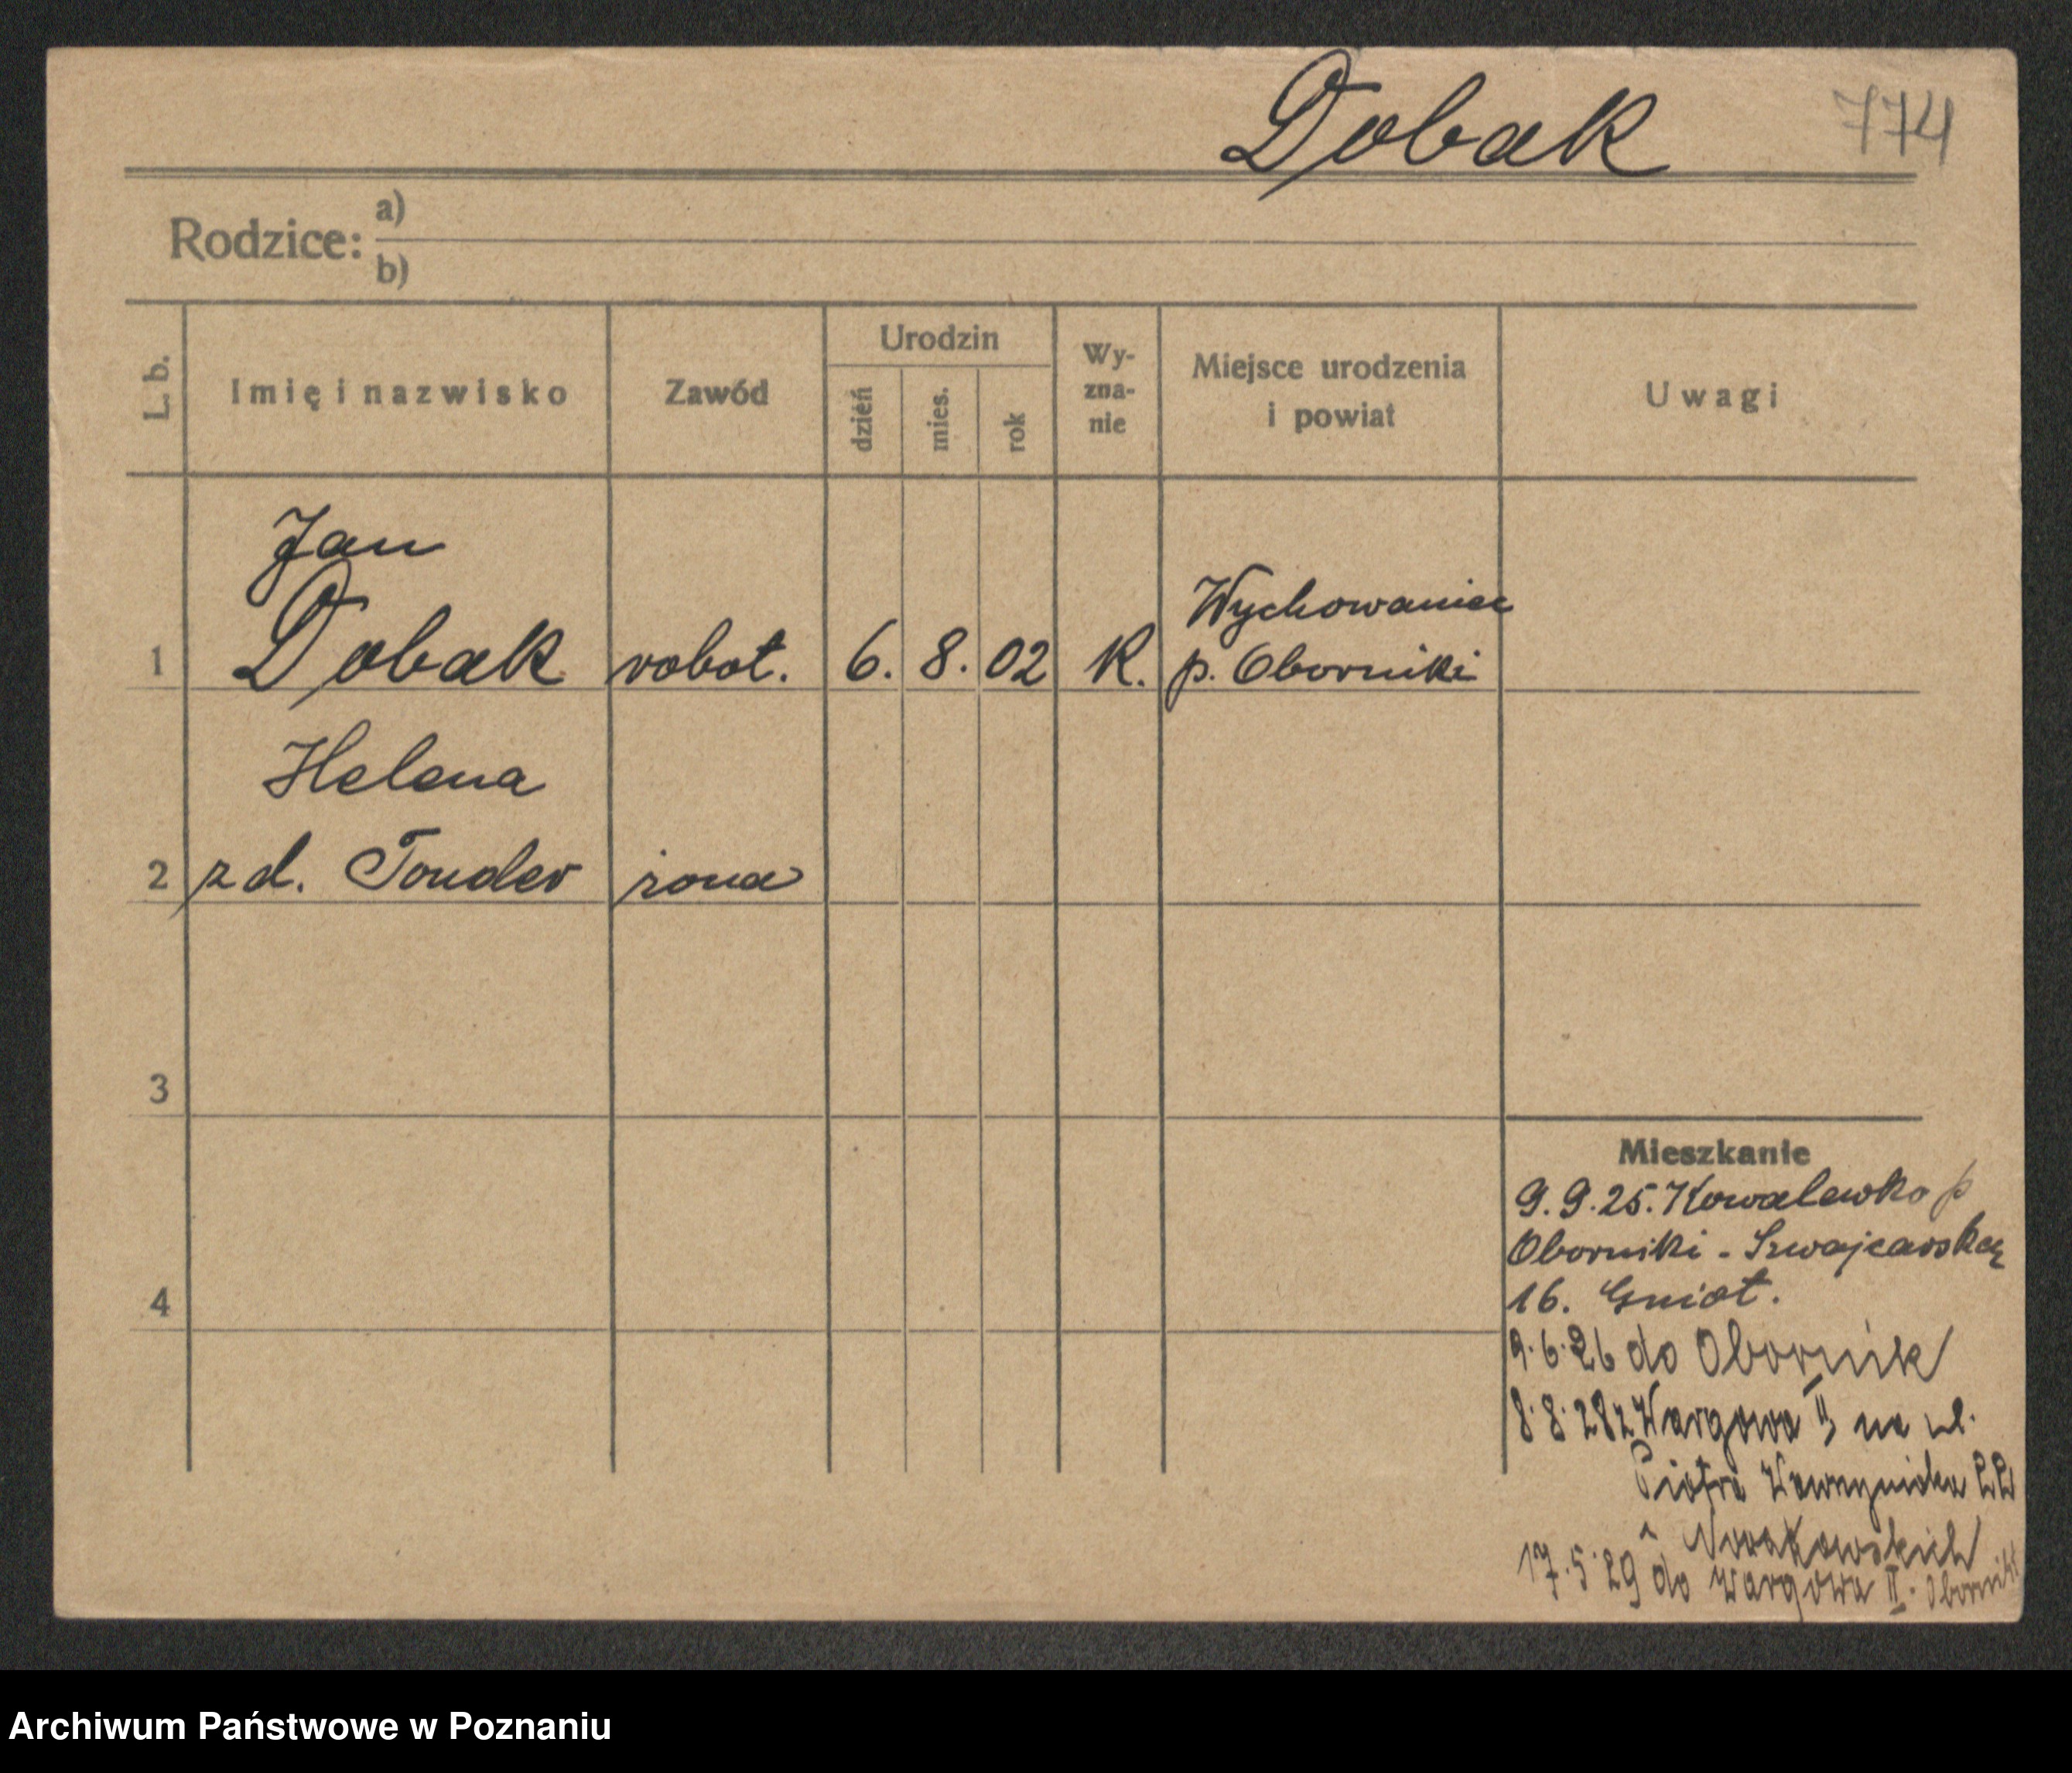 Dobak 774
Rodzice: a)
b)
L. b. Imię i nazwisko Zawód Urodzin dzień mies. rok Wy-zna-nie Miejsce urodzenia i powiat Uwagi
Jan
1 Dobak robot. 6. 8. 02 K. Wychowaniec
p. Oborniki
Helena
2 z d. Tonder żona
3
4
Mieszkanie
9.9.25. Kowalewko p
Oborniki - Szwajcarska
16. Gniot.
9.6.26 do Obornik
8.8.28 z Wargowa II na ul.
Piotra Wawrzyniaka 22
Nowakowskich
17.5.29 do Wargowa II. Oborniki
Archiwum Państwowe w Poznaniu